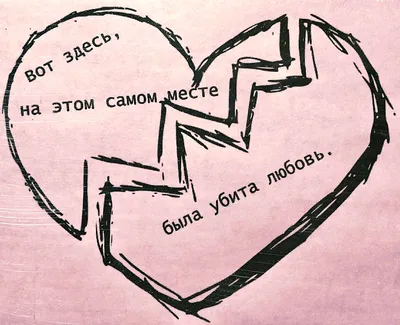 вот здесь,
на этом самом месте
была убита любовь.